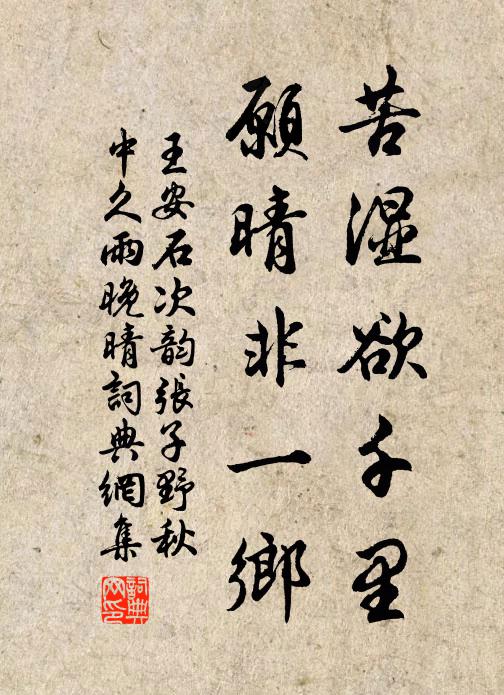 苦湿欲千里
願晴非一鄉
王安石次韵張子野秋
中久雨晚晴詞典網集
詞典
网印